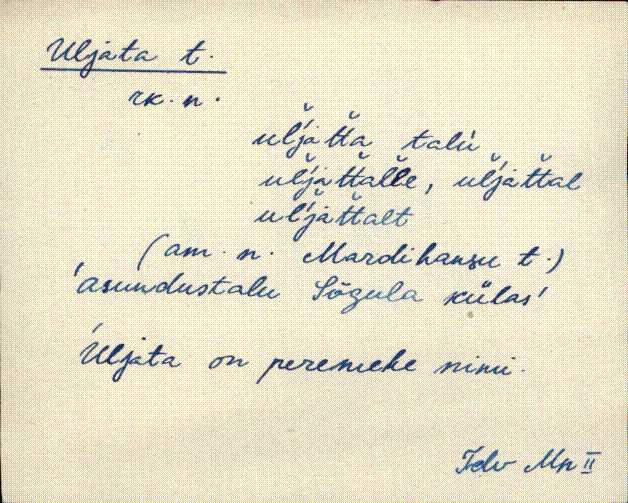 Uljata t.
rk. n.
uĺjat̆t̆a talù
uĺjat̆t̆al̆l̆e, uĺjat̆t̆al
uĺjat̆t̆alt
(am. n. Mardihansu t.)
'asundustalu Sõgula külas'
Uljata on peremehe nimi.